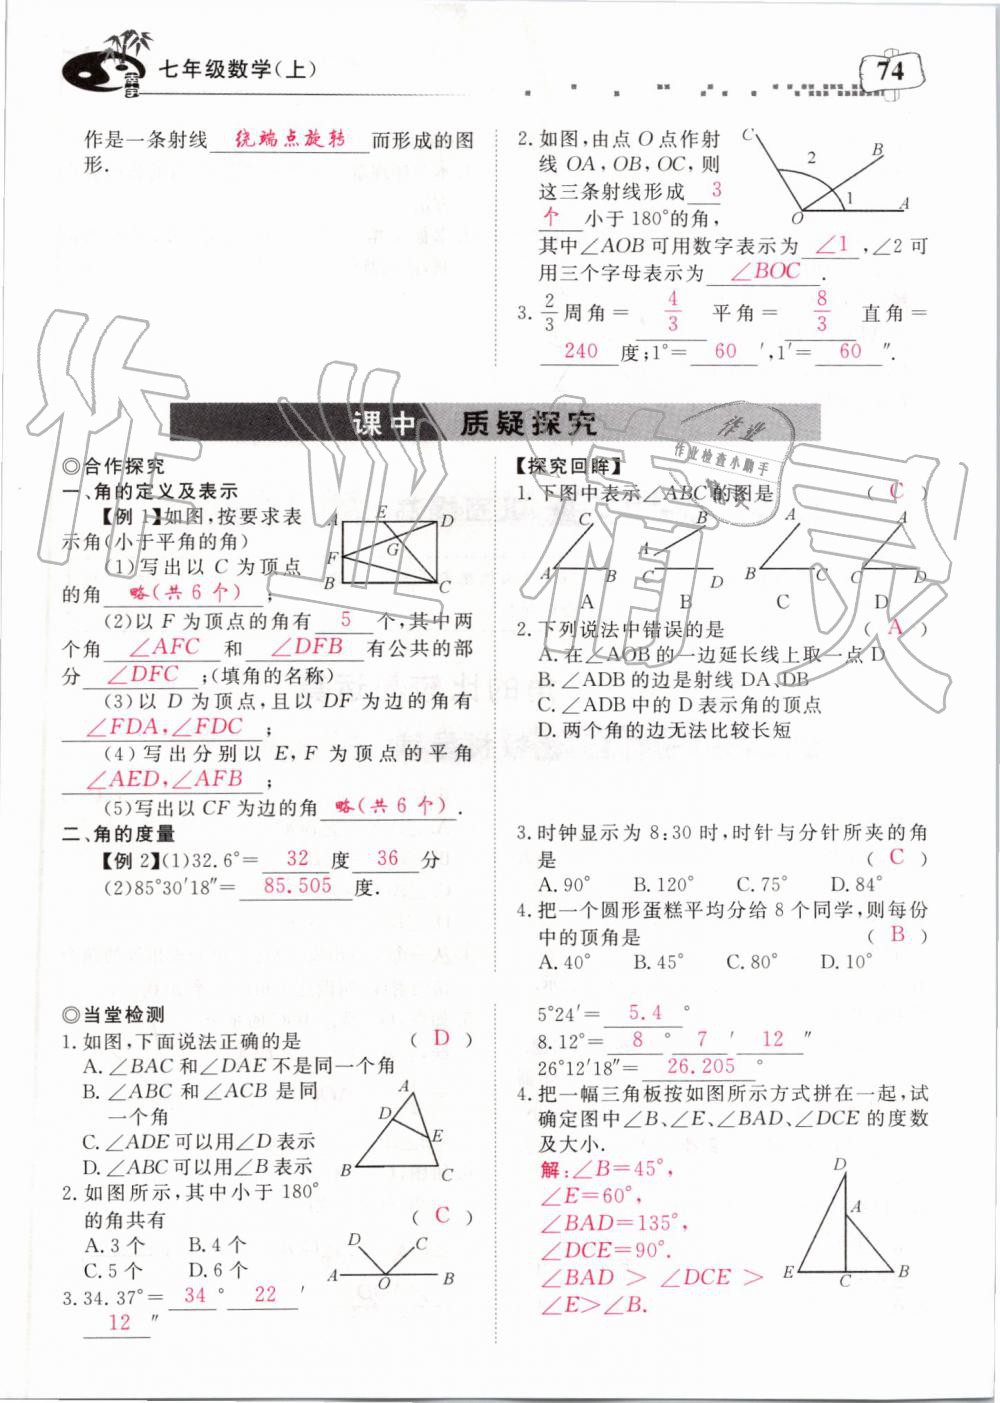 七年级数学(上)
74
作是一条射线 绕端点旋转 而形成的图
形.
2.如图,由点 O 点作射
线 OA,OB,OC,则
这三条射线形成 3
个 小于180°的角,
其中∠AOB可用数字表示为 ∠1 ,∠2可
用三个字母表示为 ∠BOC .
C
B
2
1
O
A
3. 2/3 周角= 4/3 平角= 8/3 直角=
240 度;1°= 60 ′,1′= 60 ″.
课中 质疑探究
◎合作探究
一、角的定义及表示
【例1】如图,按要求表
示角(小于平角的角)
(1)写出以 C 为顶点
的角 略(共6个) ;
A E D
G
F
B C
(2)以 F 为顶点的角有 5 个,其中两
个角 ∠AFC 和 ∠DFB 有公共的部
分 ∠DFC ;(填角的名称)
(3)以 D 为顶点,且以 DF 为边的角有
∠FDA,∠FDC ;
(4)写出分别以 E,F 为顶点的平角
∠AED,∠AFB ;
(5)写出以CF为边的角 略(共6个) .
二、角的度量
【例2】(1)32.6°= 32 度 36 分
(2)85°30′18″= 85.505 度.
【探究回眸】
1.下图中表示∠ABC的图是 ( C )
C B A A
A
A B C D B C C D
A B C D
2.下列说法中错误的是 ( A )
A.在∠AOB的一边延长线上取一点D
B.∠ADB的边是射线DA、DB
C.∠ADB中的D表示角的顶点
D.两个角的边无法比较长短
3.时钟显示为8:30时,时针与分针所夹的角
是 ( C )
A.90° B.120° C.75° D.84°
4.把一个圆形蛋糕平均分给8个同学,则每份
中的顶角是 ( B )
A.40° B.45° C.80° D.10°
◎当堂检测
1.如图,下面说法正确的是 ( D )
A.∠BAC和∠DAE不是同一个角
B.∠ABC和∠ACB是同
一个角
C.∠ADE可以用∠D表示
D.∠ABC可以用∠B表示
A
D
E
B C
2.如图所示,其中小于180°
的角共有 ( C )
A.3个 B.4个
C.5个 D.6个
D C
A O B
3.34.37°= 34 ° 22 ′
12 ″
5°24′= 5.4 °
8.12°= 8 ° 7 ′ 12 ″
26°12′18″= 26.205 °
4.把一幅三角板按如图所示方式拼在一起,试
确定图中∠B、∠E、∠BAD、∠DCE的度数
及大小.
解:∠B=45°,
∠E=60°,
∠BAD=135°,
∠DCE=90°.
∠BAD > ∠DCE >
∠E>∠B.
D
A
E C B
作业精灵
作业
作业检查小助手
精灵